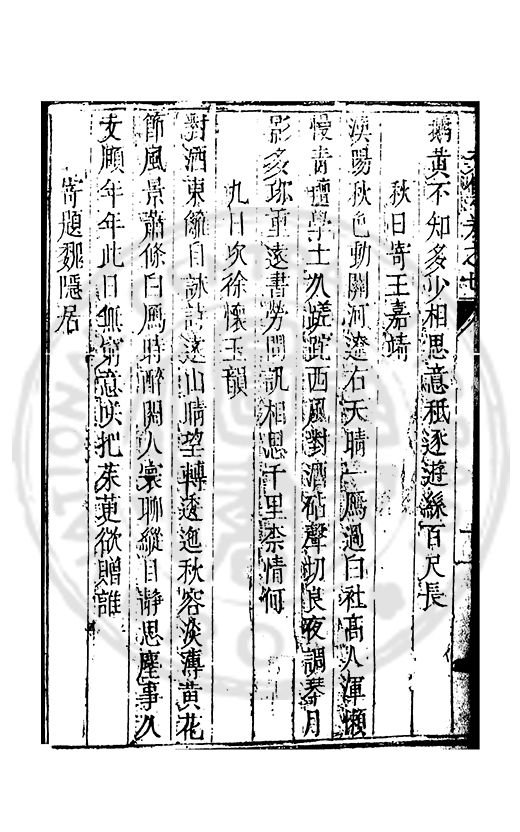 鵝黃不知多少相思意秪逐遊絲百尺長
秋日寄王嘉靖
漢陽秋色動關河遼右天晴一鴈過白社高人渾懶
慢青壇學士久蹉跎西風對酒砧聲切良夜調琴月
影多珎重遠書勞問訊相思千里柰情何
九日次徐懷玉韻
對酒東籬自詠詩遠山晴望轉逶迤秋容淡薄黃花
節風景蕭條白鴈時醉閣人懷聊縱目靜思塵事久
支頤年年此日無窮意笑把茱萸欲贈誰
寄題鄴隱居